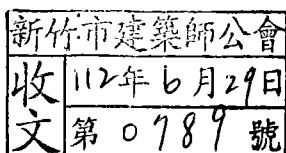 新竹市建築師公會
收文
112年6月29日
第0789號